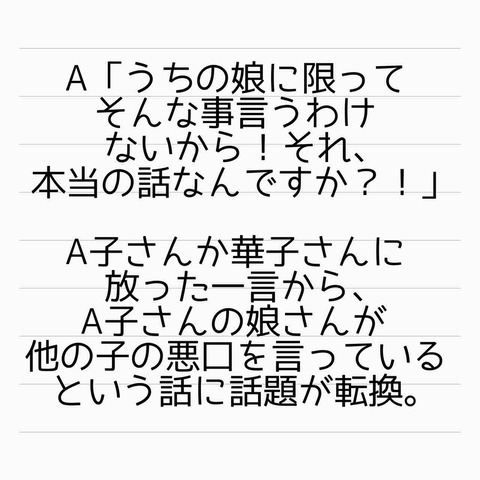 A「うちの娘に限って
そんな事言うわけ
ないから！それ、
本当の話なんですか？！」
A子さんか華子さんに
放った一言から、
A子さんの娘さんが
他の子の悪口を言っている
という話に話題が転換。